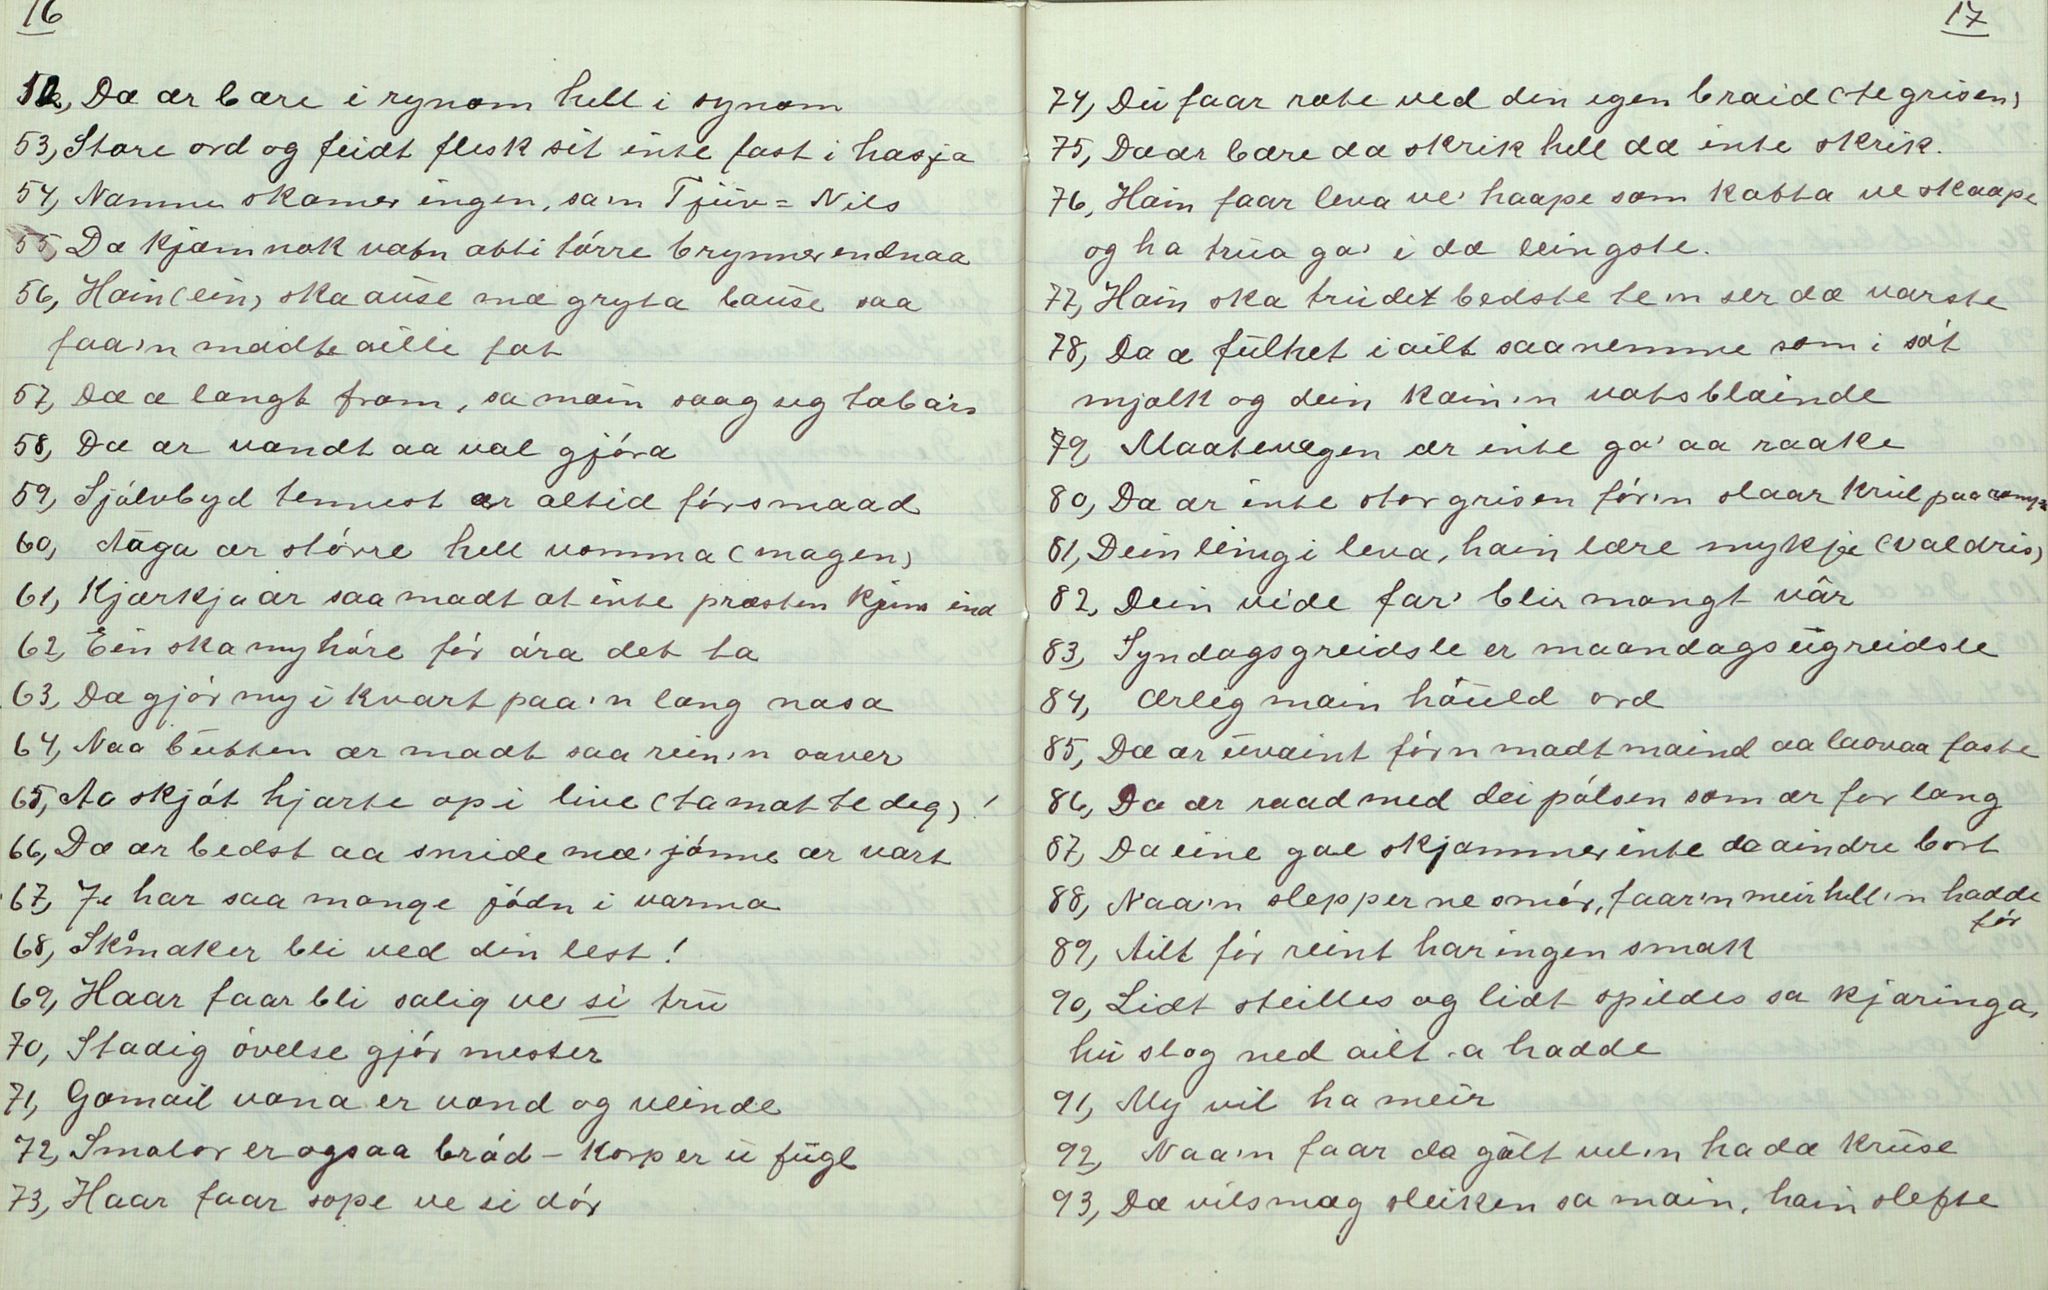 16
52, Dæ ær bære i rynom hell i synom
53, Store ord og feidt flesk sit inte fast i hasja
54, Namne skamer ingen, sa'n Tjüv=Nils
55 Dæ kjæm nok vatn atti tørre brynner endnaa
56, Hain (ein) ska ause mæ gryta bause saa
faa'n madt ailli fat
57, Dæ æ langt fram, sa main saag seg tabars
58, Dæ ær vandt aa væl gjøra
59, Sjølvbyd tennest ær altid førsmaad
60, Aaga ær større hell vomma (magen)
61, Kjærkja ær saa madt at inte præsten kjem ind
62, Ein ska my høre før øra det ta
63, Dæ gjør my i kvart paa'n lang nasa
64, Naa bütten ær madt saa rein'n oaver
65, Aa skjøt hjarte op i live (ta mat te deg)!
66, Dæ ær bedst aa smide mæ' jønne ær vart
67, Je har saa mange jødn i varma
68, Skomaker bli ved din lest!
69, Haar faar bli salig ve si trü
70, Stadig øvelse gjør mester
71, Gamail vana er vond og veinde
72, Smalor er ogsaa brød – Korp er ü fügl
73, Haar faar sope ve si dør
17
74, Dü faar rote ved din egen braid (te grisen)
75, Dæ ær bære dæ skrik hell dæ inte skrik.
76, Hain faar leva ve' haape som katta ve skaape
og ha trüa ga' i dæ leingste.
77, Hain ska trü det bedste te'n ser dæ varste
78, Dæ æ fülhet i ailt saa nemme som i søt
mjølk og dein kain'n vatsblainde
79, Maatevegen ær inte ga' aa raake
80, Dæ ær inte stor grisen før'n slaar krül paa
81, Dein leing i leva, hain lære mykje (Valdris)
82, Dein vide far' blir mangt vâr
83, Syndagsgreidsle er maandagsügreidsle
84, Ærleg main høüld ord
85, Dæ ær üvaint førn madt maind aa laavaa faste
86, Dæ ær raad med dei pølsen som ær for lang
87, Dæ eine gæle skjæmmer inte dæ aindre bort
88, Naa'n slepper ne smør, faar'n meir hell'n hadde
før
89, Ailt før reint har ingen smak
90, Lidt steilles og lidt spildes sa kjæringa,
hü slog ned ailt a hadde
91, My vil ha meir
92, Naa'n faar dæ gølt vil'n ha dæ krüse
93, Dæ vilsmæg sleiken sa main, hain slefste